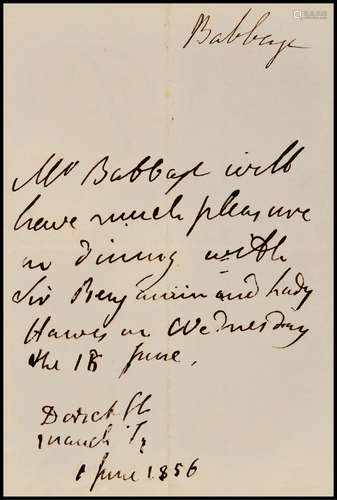 Babbage
Mr Babbage will
have much pleasure
in dining with
Sir Benjamin and Lady
Hawes on Wednesday
the 18 June.
Dorset St
Manch Sq
1 June 1856